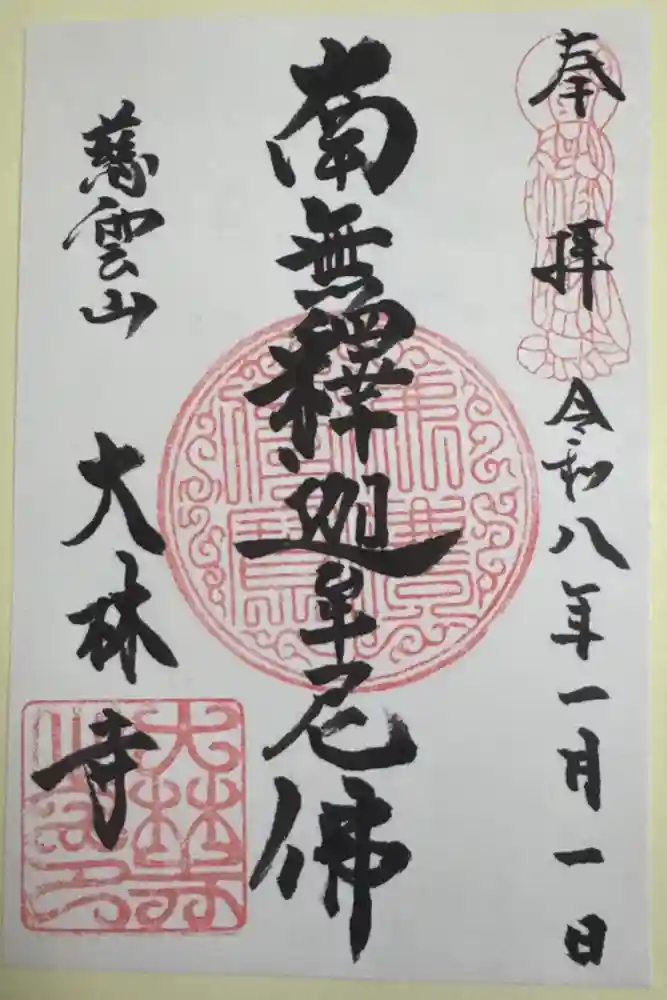 奉拝 令和八年一月一日
南無釋迦牟尼佛
慈雲山 大林寺